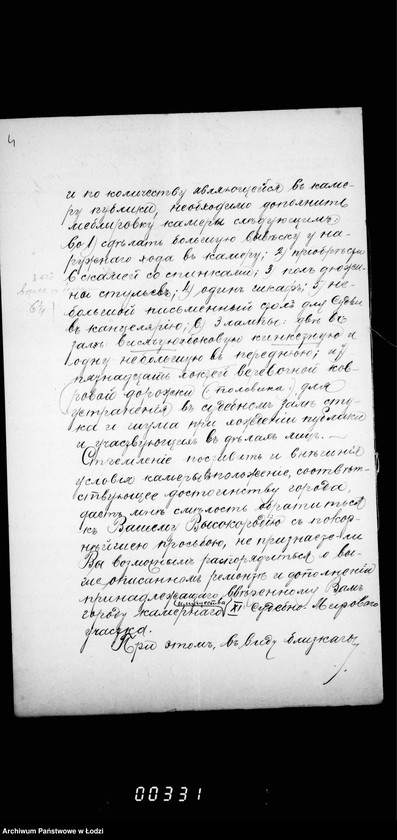 4
и по количеству являющейся въ каме-
ру публики, необходимо дополнить
меблировку камеры слѣдующимъ:
1) сдѣлать большую вывѣску у на-
ружнаго хода въ камеру; 2) пріобрѣсти
6 скамей со спинками; 3 полъ дюжи-
ны стульевъ; 4) одинъ шкафъ; 5) не-
большой письменный столъ для Судьи
въ канцелярію; 6) 3 лампы: двѣ въ
залъ висячую и
одну небольшую въ переднюю; и 7)
пятнадцать локтей веревочной ков-
ровой дорожки (половика) для
устраненія въ судебномъ залѣ сту-
ка и шума при хожденіи публики
и участвующихъ въ дѣлахъ лицъ. —
Стремленіе поставить и внѣшнія
условія камеры въ положеніе, соотвѣт-
ствующее достоинству города,
даетъ мнѣ смѣлость обратиться
къ Вашему Высокородію съ покор-
нѣйшею просьбою, не признаете-ли
Вы возможнымъ распорядиться о вы-
ше описанномъ ремонтѣ и дополненіи
принадлежащаго ввѣренному Вамъ
имущества
городу камернаго XI Судебно-Мироваго
участка.
При этомъ, въ виду близкаго
00331
Archiwum Państwowe w Łodzi